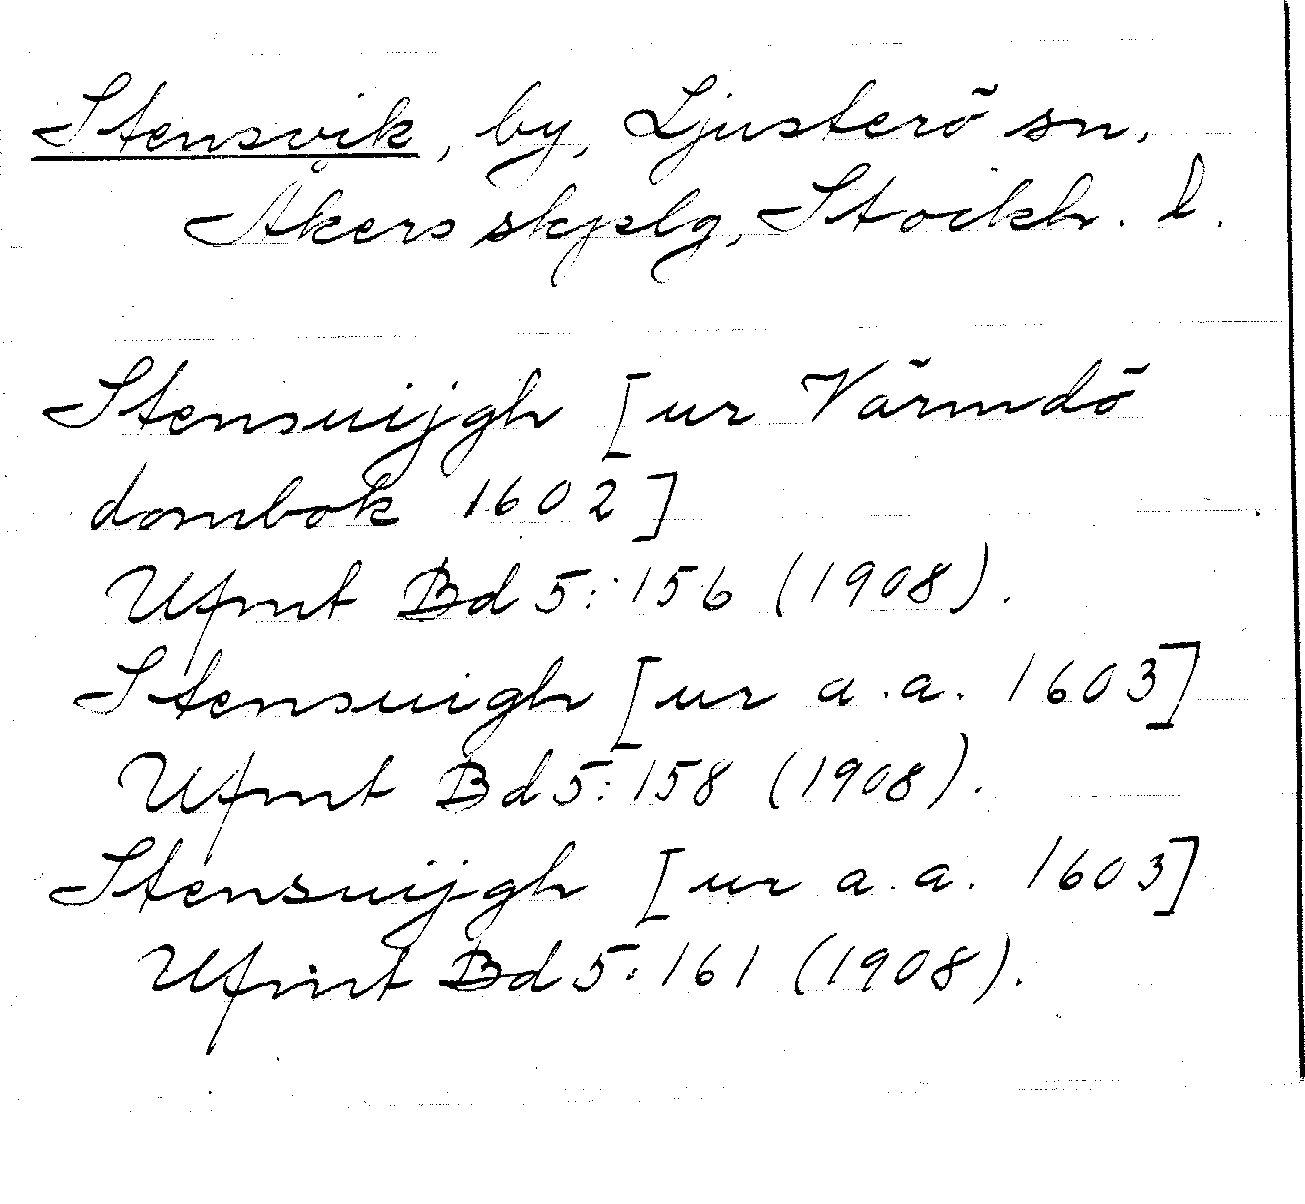 Stensvik, by, Ljusterö sn,
Åkers skjplg, Stockh. l.
Stensuijgh [ur Värmdö
dombok 1602]
Ufmt Bd 5:156 (1908).
Stensuigh [ur a.a. 1603]
Ufmt Bd 5:158 (1908).
Stensuijgh [ur a.a. 1603]
Ufmt Bd 5:161 (1908).